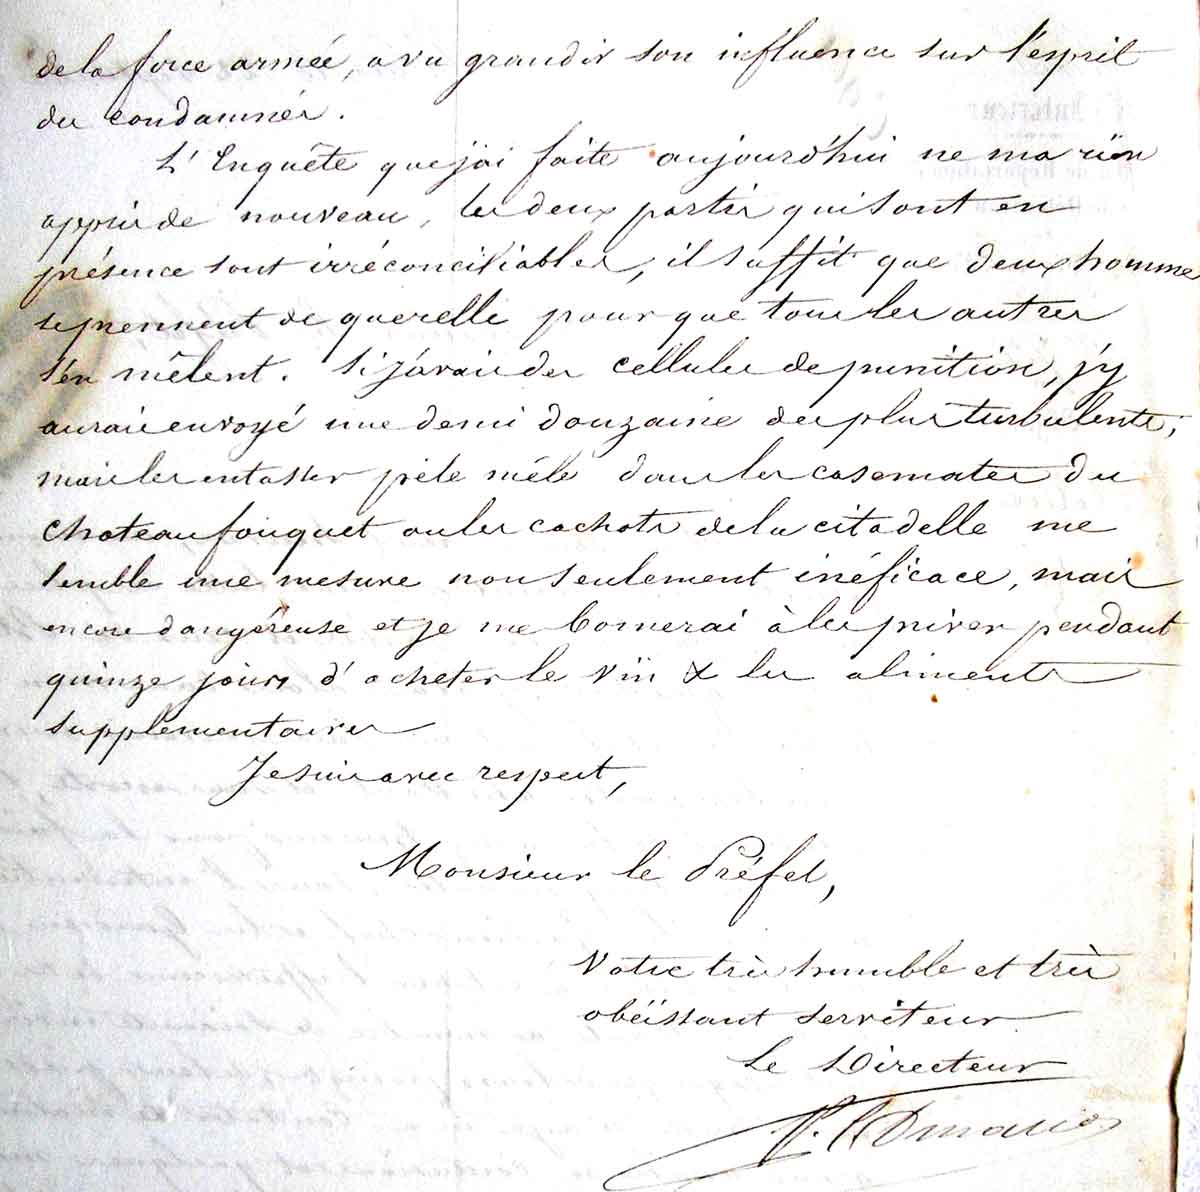 de la force armée, a vu grandir son influence sur l'esprit
des condamnés.
L'Enquête que j'ai faite aujourd'hui ne m'a rien
appris de nouveau, les deux partis qui sont en
présence sont irréconciliables, il suffit que deux homme
se prennent de querelle pour que tous les autres
s'en mêlent. Si j'avais des cellules de punition, j'y
aurais envoyé une demi douzaine des plus turbulents;
mais les entasser pèle mêle dans les casemates du
Chateau fouquet ou les cachots de la citadelle me
semble une mesure non seulement inéficace, mais
encore dangéreuse et je me bornerai à les priver pendant
quinze jours d'acheter le vin & les aliments
supplementaires
Je suis avec respect,
Monsieur le Préfet,
Votre très humble et très
obéissant serviteur
Le Directeur